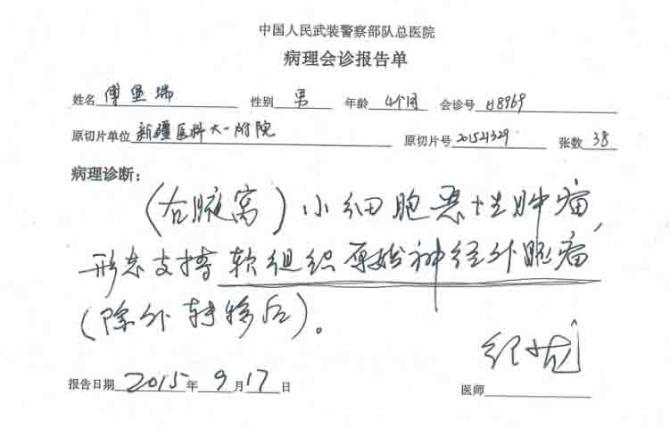 中国人民武装警察部队总医院
病理会诊报告单
姓名 傅堡瑞 性别 男 年龄 4个月 会诊号 H8969
原切片单位 新疆医科大一附院 原切片号 201521329 张数 38
病理诊断：
（右腋窝）小细胞恶性肿瘤，
形态支持软组织原始神经外胚瘤
（除外转移后）。
报告日期 2015年9月17日 医师 纪小龙